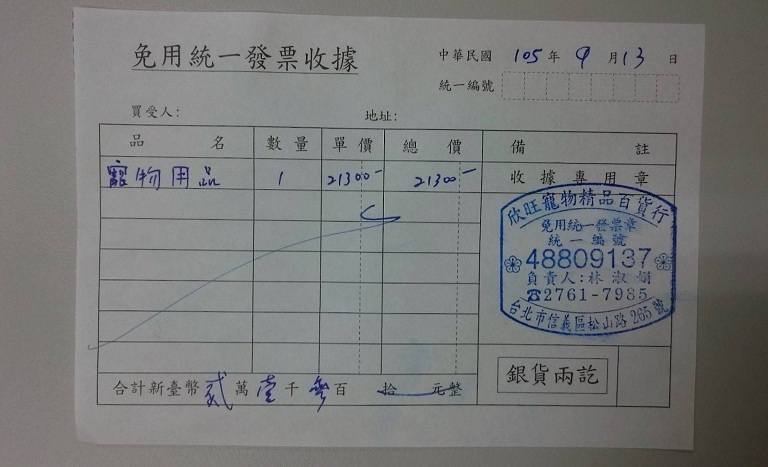 免用統一發票收據
中華民國 105 年 9 月 13 日
統一編號
買受人: 地址:
品名 數量 單價 總價 備註
寵物用品 1 21300- 21300- 收據專用章
欣旺寵物精品百貨行
免用統一發票章
統一編號
48809137
負責人:林淑娟
☎2761-7985
台北市信義區松山路265號
合計新臺幣 貳 萬 壹 千 參 百 拾 元整
銀貨兩訖